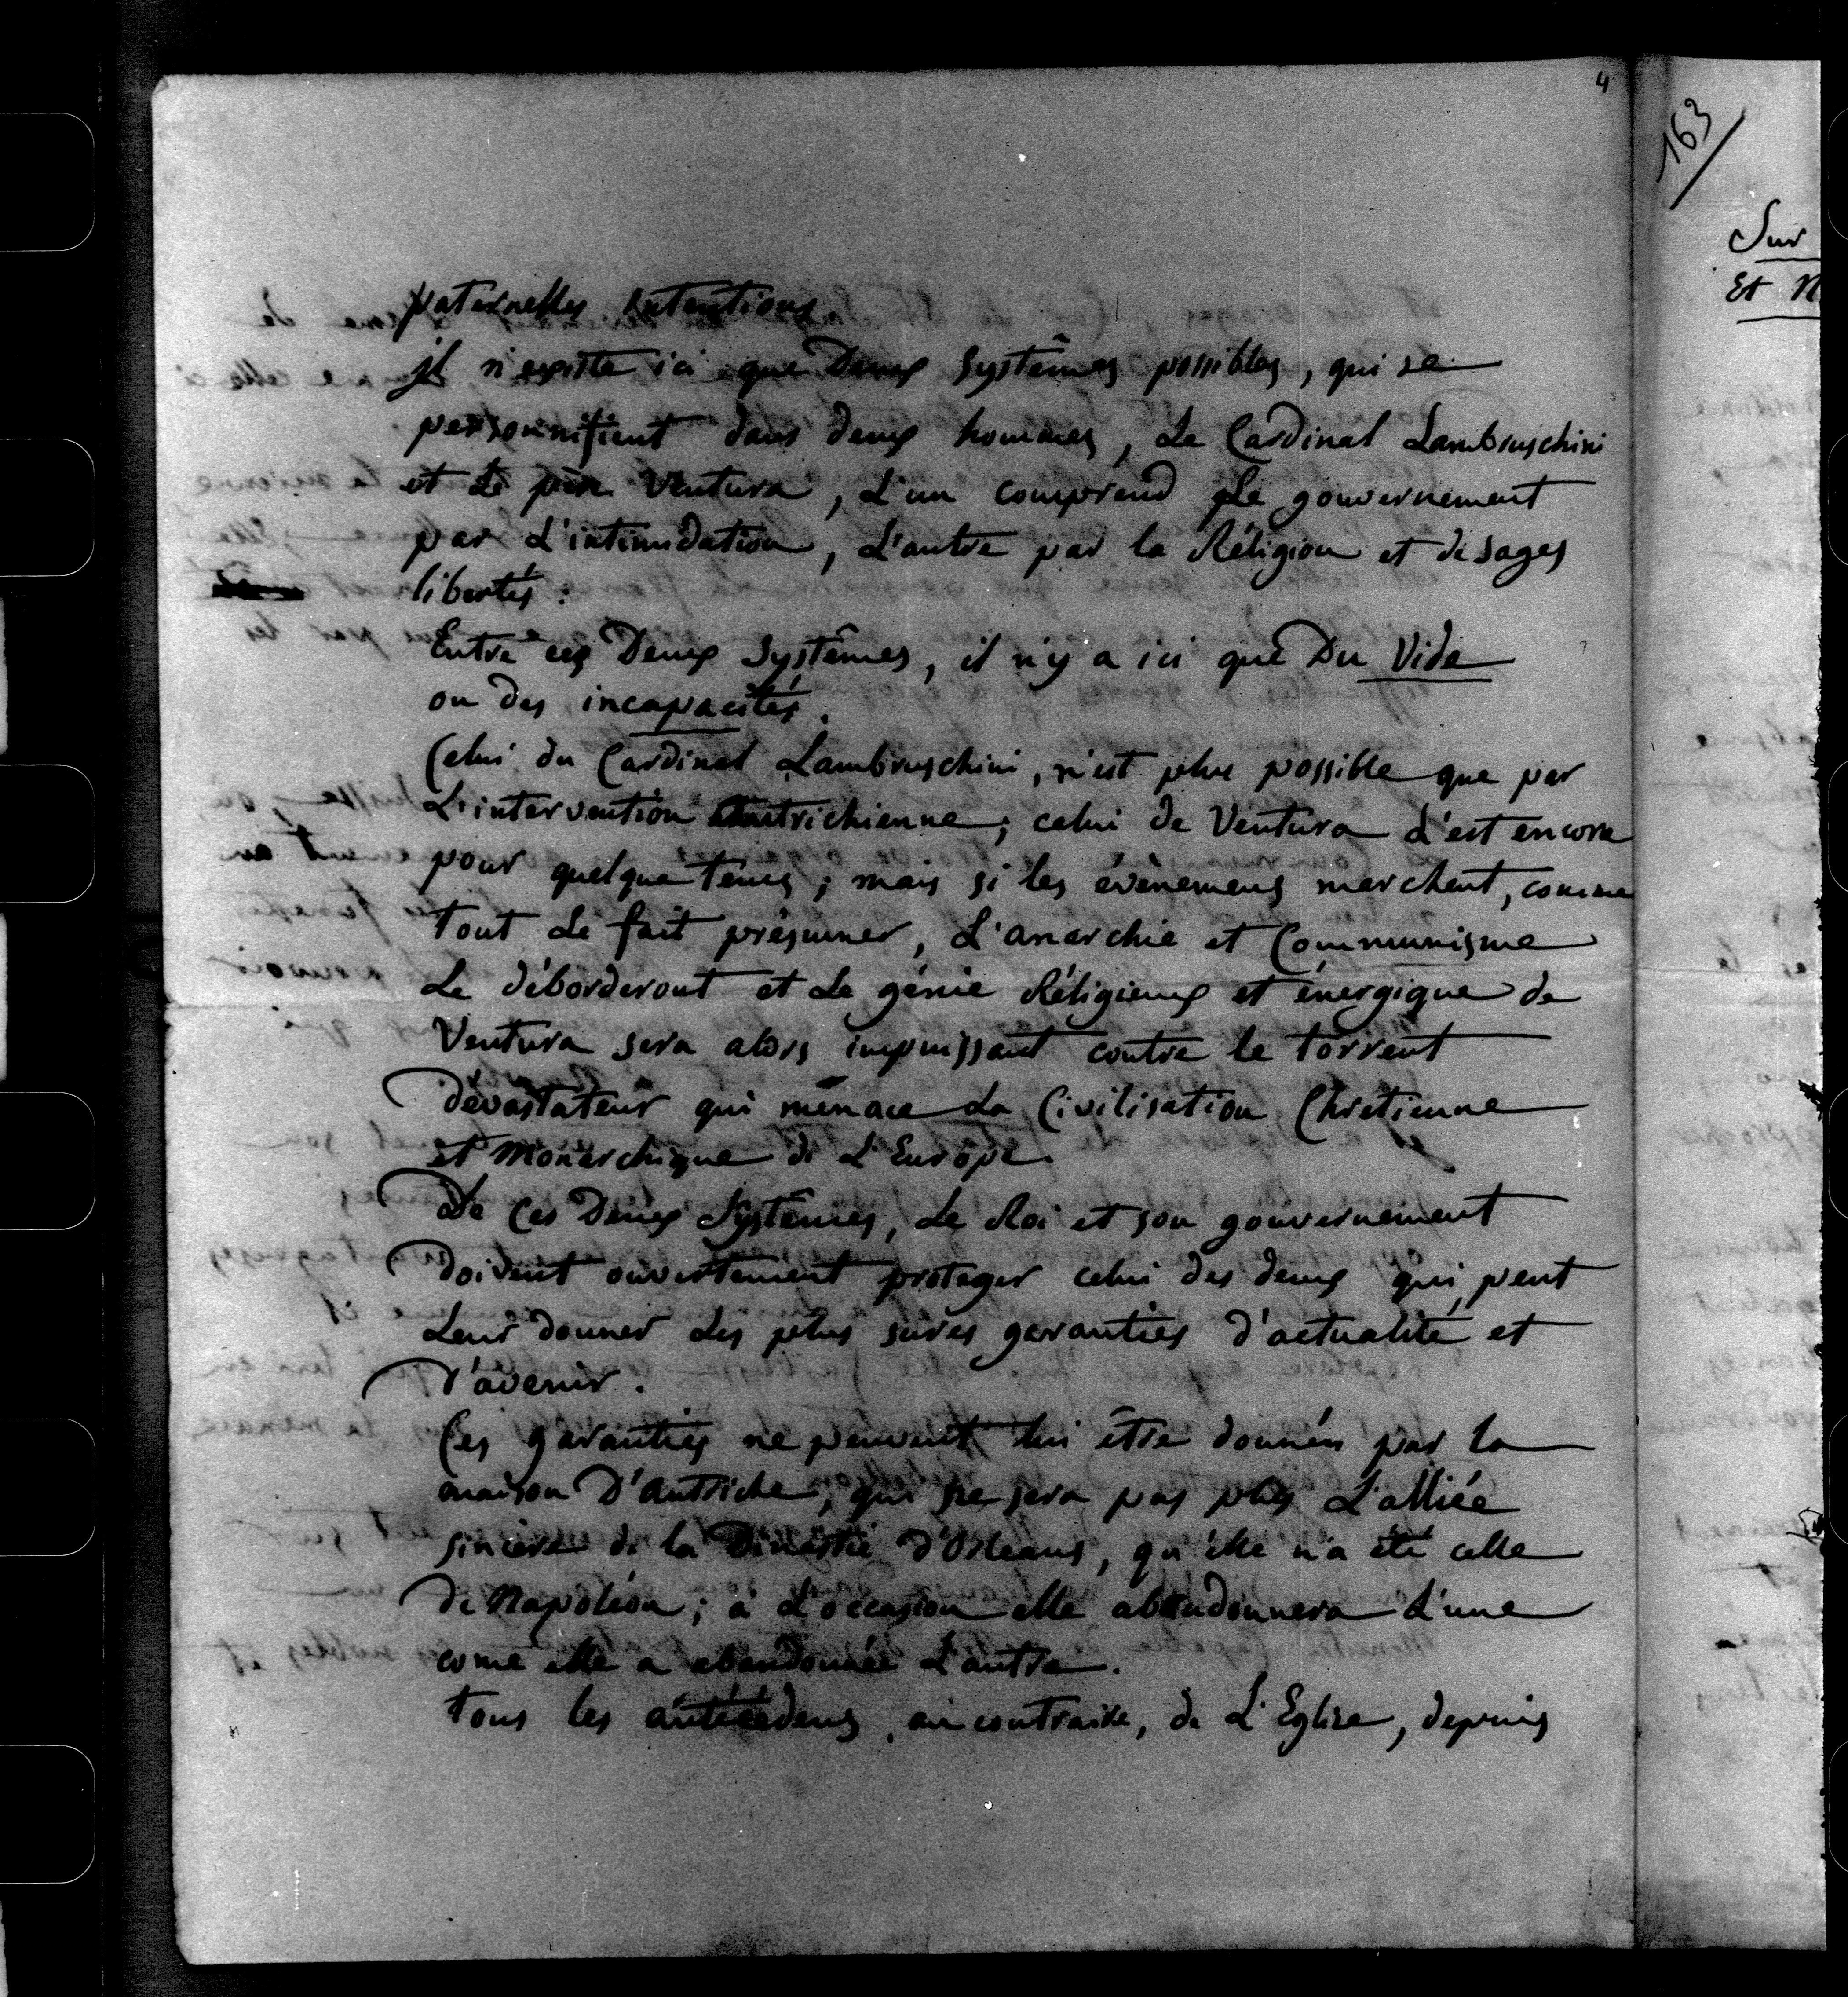 4
163
Sur
Et N
paternelles intentions
il n'existe ici que Deux Systêmes possibles, qui se
personnifient dans deux hommes, Le Cardinal Lambruschini
et Le père Ventura, L'un comprend Le gouvernement
par L'intimidation, L'autre par la Réligion et de sages
libertés :
Entre ces Deux Systêmes, il n'y a ici que Du Vide
ou des incapacités.
Celui du Cardinal Lambruschini, n'est plus possible que par
L'intervention Autrichienne ; celui de Ventura L'est encore
pour quelque tems ; mais si les évènemens marchent, comme
tout Le fait présumer, L'anarchie et Communisme
Le déborderont et Le génie Réligieux et énergique de
Ventura sera alors impuissant contre le torrent
Dévastateur qui ménace La Civilisation Chrétienne
et Monarchique de L'Europe.
De Ces Deux Systêmes, Le Roi et son gouvernement
Doivent ouvertement proteger celui des deux qui peut
Leur donner Les plus sures garanties d'actualité et
D'avenir.
Ces garanties ne peuvent lui être données par la
maison D'Autriche, qui ne sera pas plus L'alliée
sincère de la Dinastie D'Orleans, qu'elle n'a été celle
De Napoléon ; à L'occasion elle abandonnera L'une
come elle a abandonnée L'autre.
tous les antécédens, au contraire, de L'Eglise, depuis